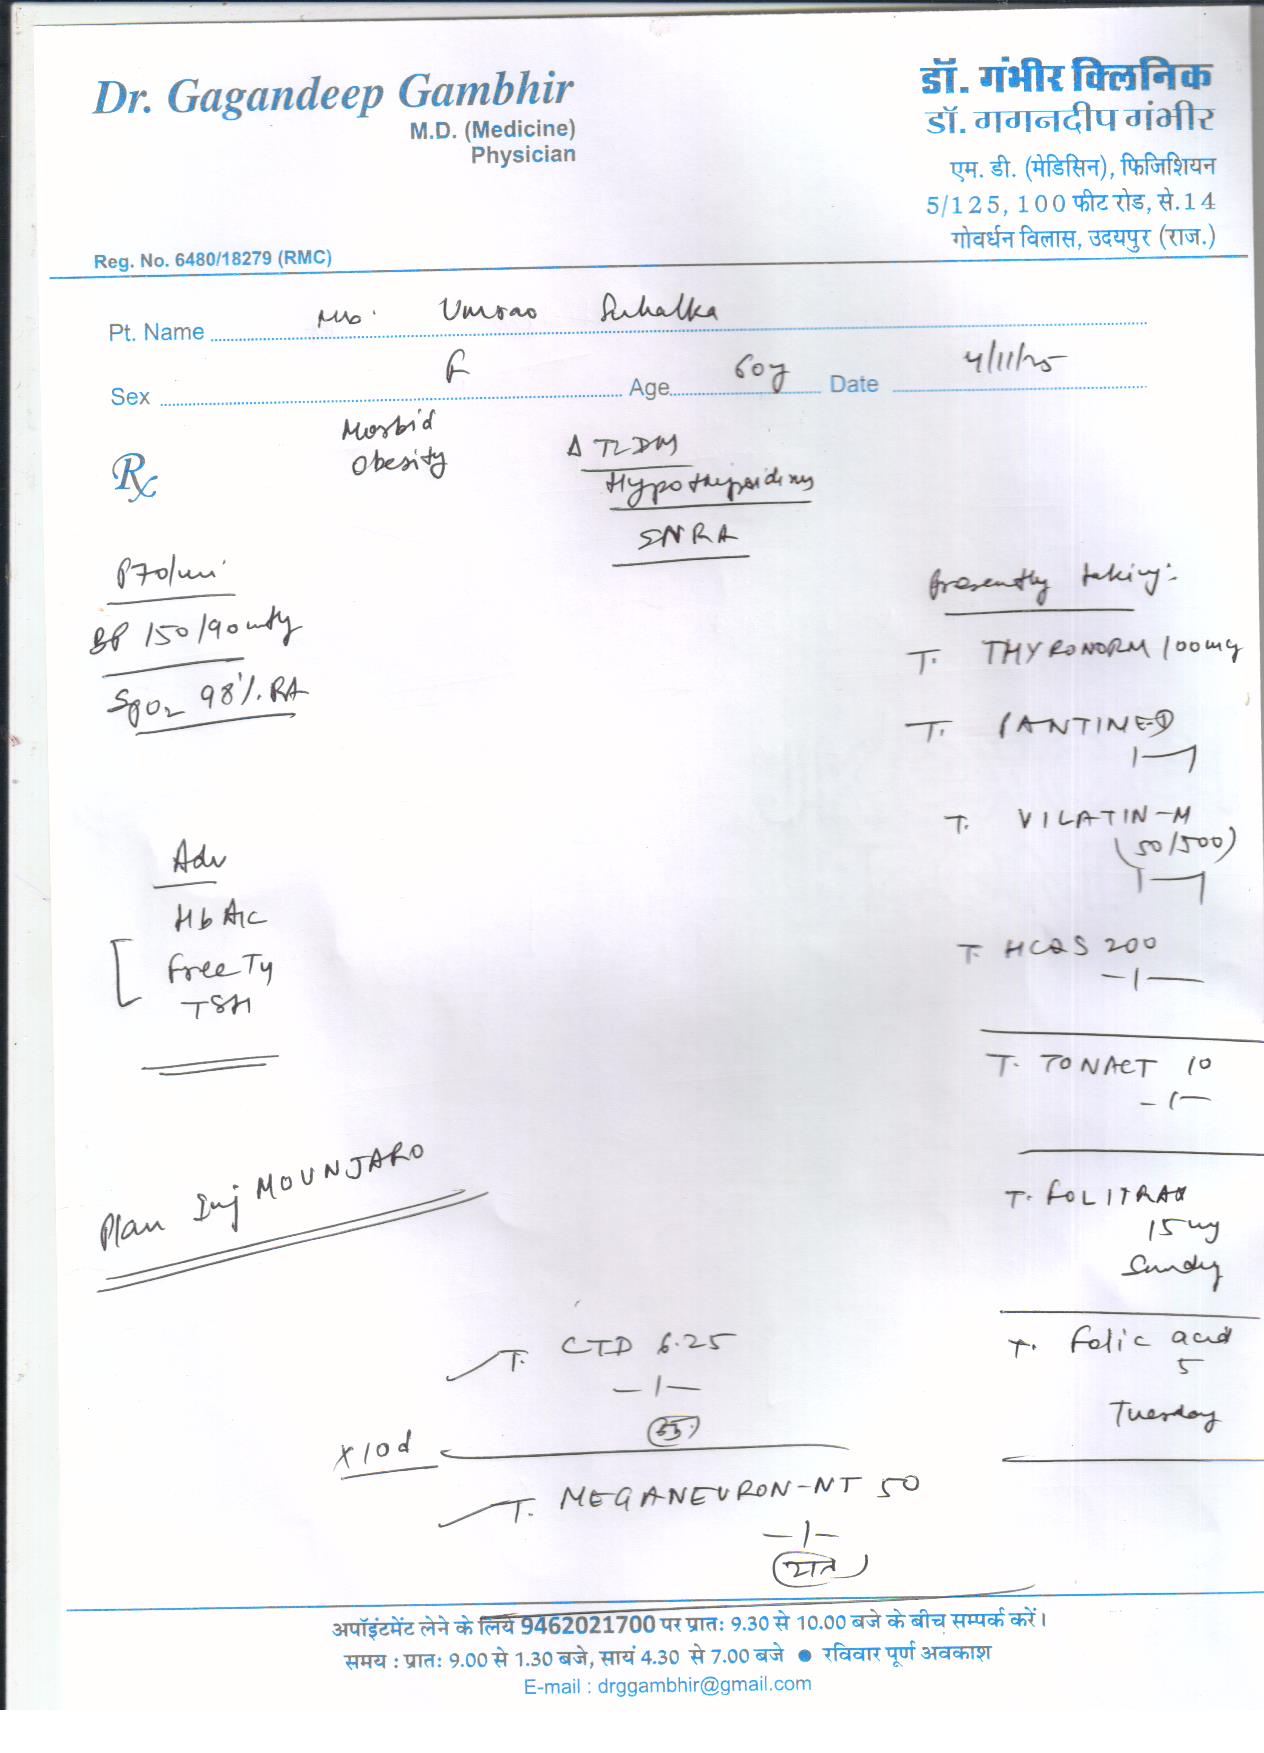 Dr. Gagandeep Gambhir
M.D. (Medicine)
Physician
Reg. No. 6480/18279 (RMC)
डॉ. गंभीर क्लिनिक
डॉ. गगनदीप गंभीर
एम. डी. (मेडिसिन), फिजिशियन
5/125, 100 फीट रोड, से.14
गोवर्धन विलास, उदयपुर (राज.)
Pt. Name Mrs. Umrao Suhalka
Sex F Age 60y Date 4/11/25
Rx
Morbid
Obesity
Δ T2DM
Hypothyroidism
SNRA
P70/min
BP 150/90 mmHg
SpO2 98% RA
Adv
HbA1C
Free T4
TSH
Plan Inj MOUNJARO
Presently taking:-
T. THYRONORM 100mg
T. PANTINE-D
1—
T. VILATIN-M
(50/500)
1—1
T. HCQS 200
—1—
T. TONACT 10
—1—
T. FOLITRAX
15mg
Sunday
T. Folic acid
5
Tuesday
T. CTD 6.25
—1—
X10d
T. MEGANEURON-NT 50
—1—
रात
अपॉइंटमेंट लेने के लिये 9462021700 पर प्रातः 9.30 से 10.00 बजे के बीच सम्पर्क करें।
समय : प्रातः 9.00 से 1.30 बजे, सायं 4.30 से 7.00 बजे ● रविवार पूर्ण अवकाश
E-mail : drggambhir@gmail.com